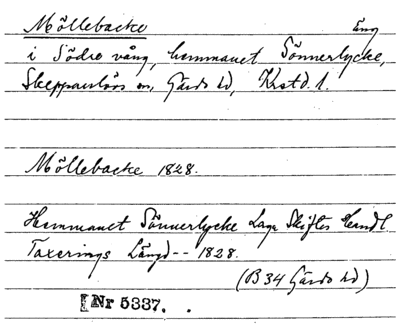 Möllebacke äng
i Södra vång, hemmanet Sönnerlycke,
Skepparslövs sn, Gärds hd, Krstd. l.
Möllebacke 1828.
Hemmanet Sönnerlycke Laga Skiftes Handl
Taxerings Längd -- 1828.
(B 34 Gärds hd)
Nr 5337.